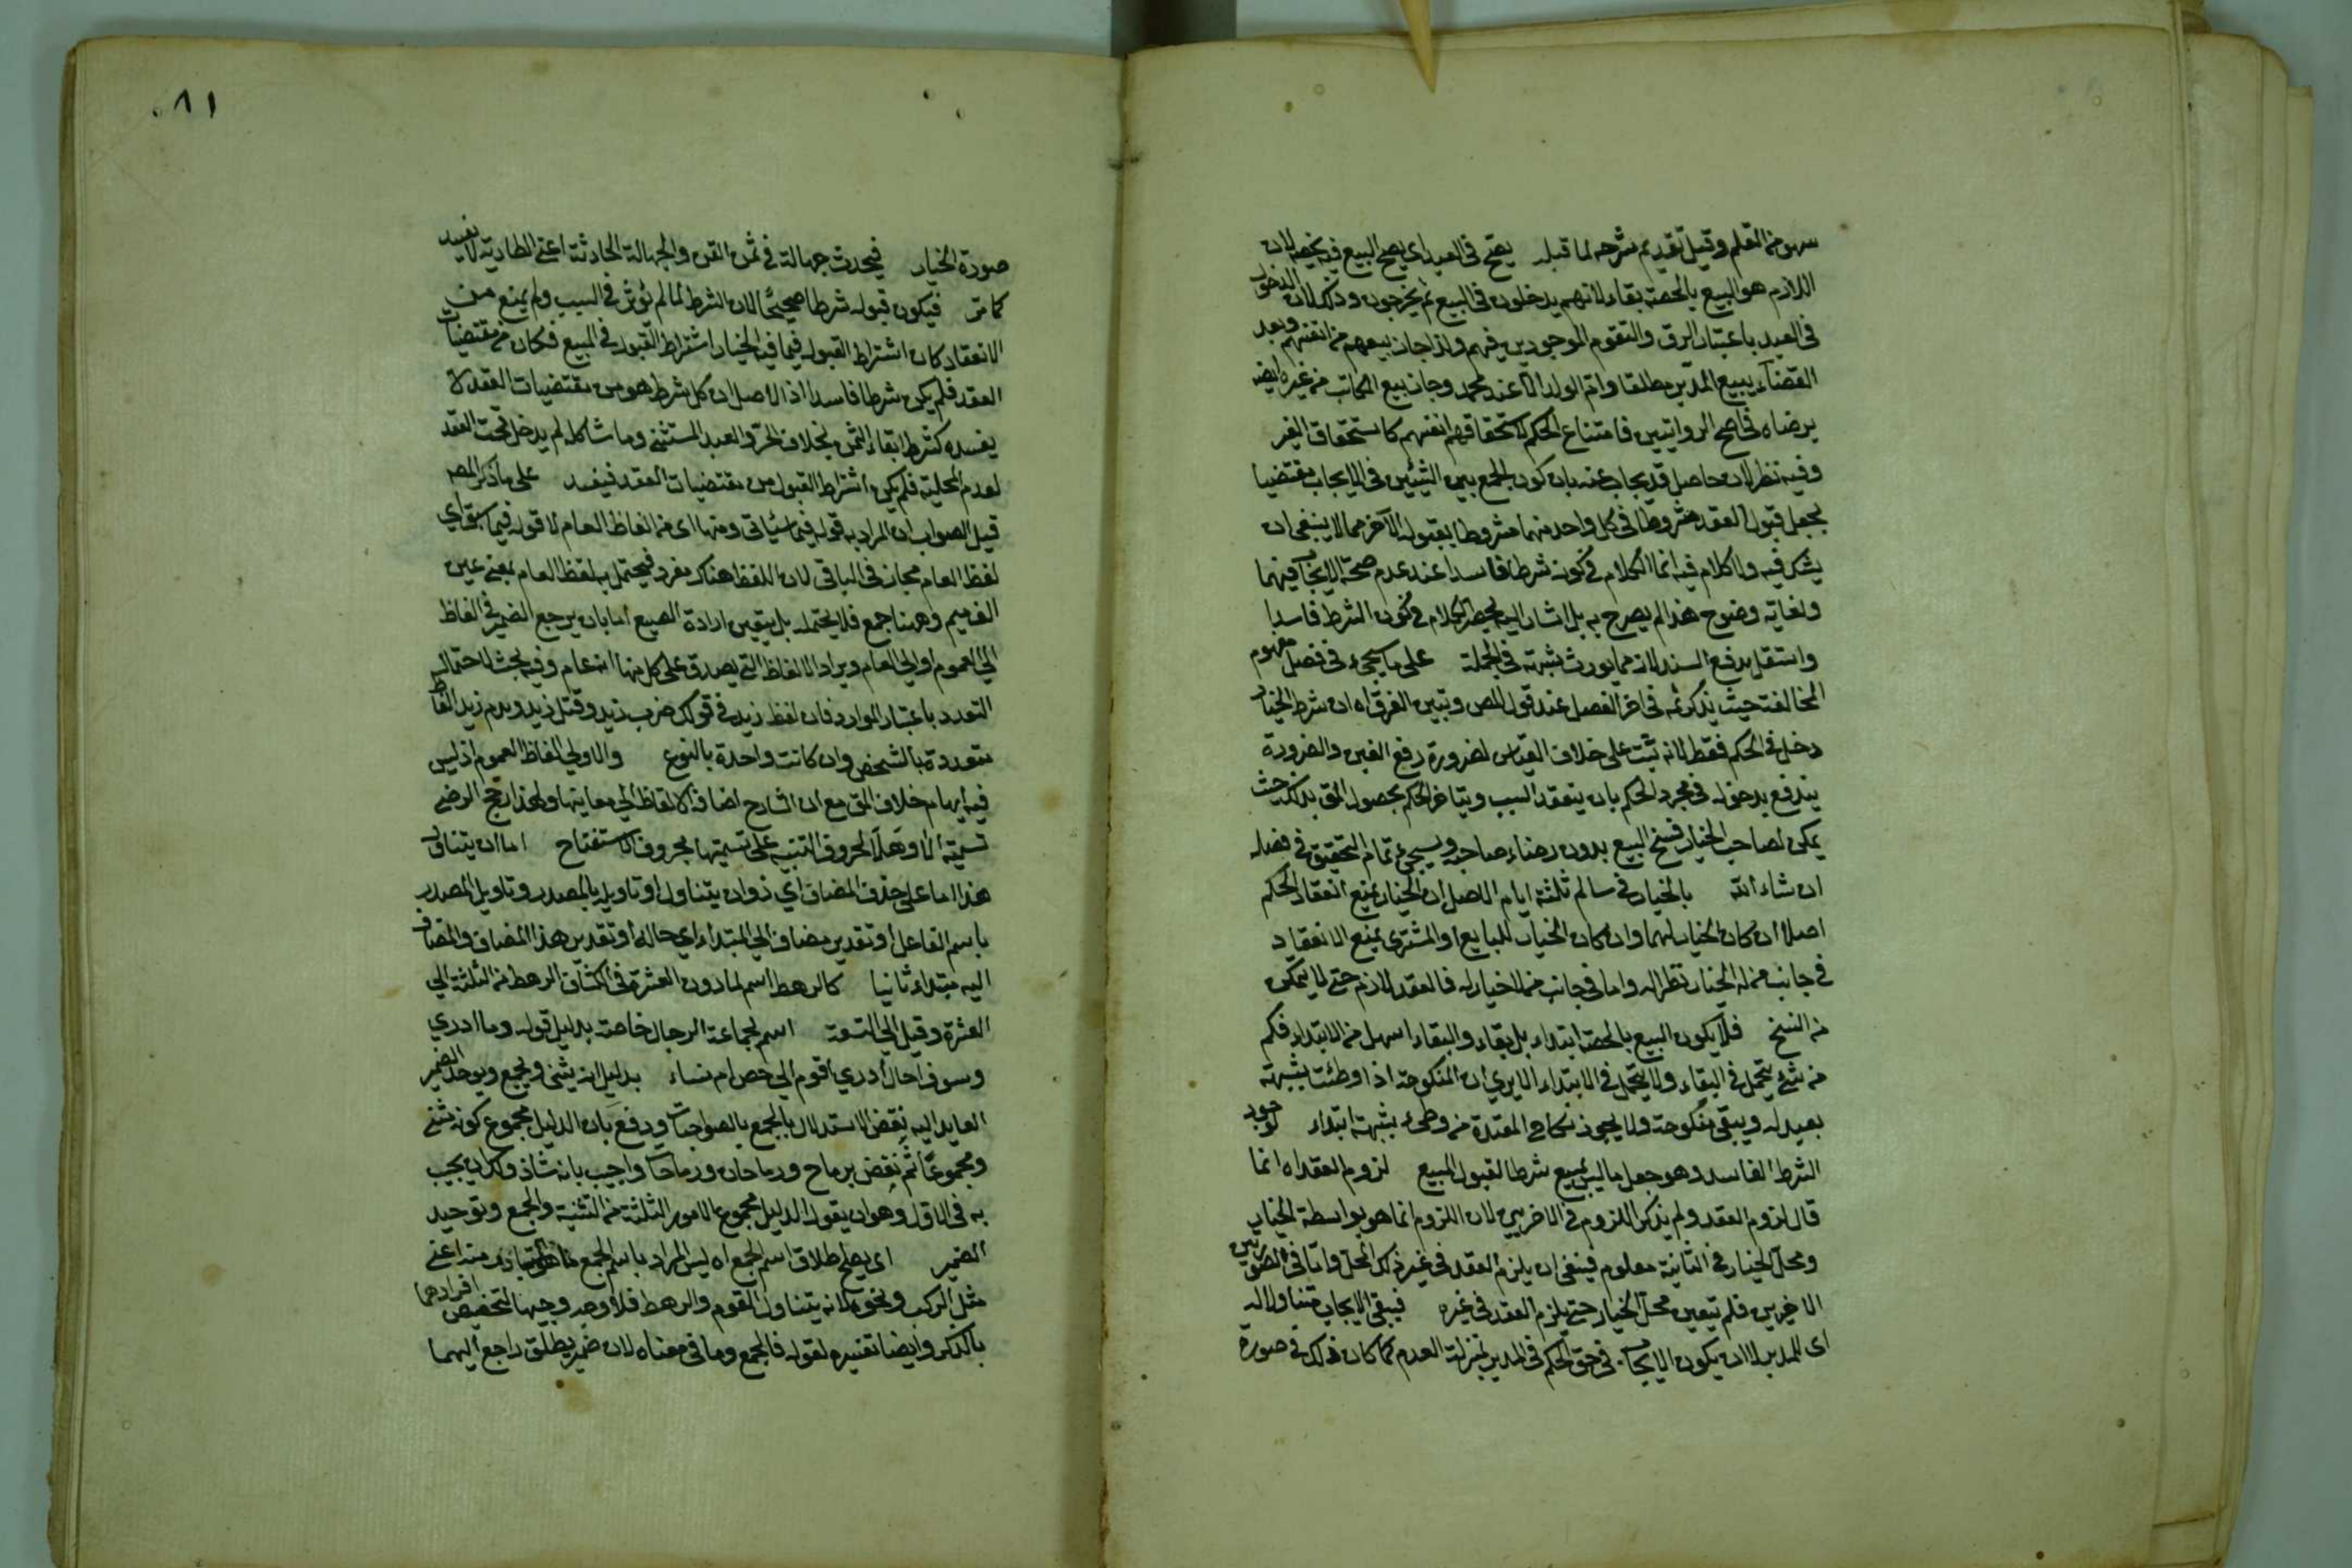 سهو من القلم وقيل تقديم شرحه لما قبله يصح في العبد اي يصح البيع فيه بحصته لان
اللازم هو البيع بالحصة بقاء لانهم يدخلون في البيع ثم يخرجون وذلك لان الدخول
في العبد باعتبار الرق والتقوم الموجودين فيهم ولذا جاز بيعهم من انفسهم وبعد
القضاء يبيع المدبر مطلقا وام الولد الا عند محمد وجاز بيع المكاتب من غيره ايضا
برضاه في اصح الروايتين فامتناع الحكم لاستحقاقهم انفسهم كاستحقاق الغير
وفيه نظر لان حاصل قد يجاب عنه بان كون الجمع بين الشيئين في الايجاب مقتضيا
لجعل قبول العقد مشروطا في كل واحد منهما مشروطا بقبول الآخر مما لا ينبغي ان
يشك فيه ولا كلام فيه انما الكلام في كونه شرطا فاسدا عند عدم صحة الايجاب فيهما
ولغاية وضوح هذا لم يصرح به بل اشار اليه الكلام في كون الشرط فاسدا
واستقل بدفع السند لانه مما يورث شبهة في الجملة على ما سيجيء في فصل مفهوم
المخالفة حيث يذكر ثمه في اخر الفصل عند قول المص وتبين الفرق اه ان شرط الخيار
دخل في الحكم فقط لانه يثبت على خلاف القياس لضرورة دفع الغبن والضرورة
يندفع بدخوله في مجرد الحكم بان ينعقد السبب ويتاخر الحكم لحصول المق بذلك حيث
يمكن لصاحب الخيار فسخ البيع بدون رضاء صاحبه وسيجيء تمام التحقيق في فصله
ان شاء الله بالخيار في سالم ثلثة ايام الاصل ان الخيار يمنع انعقاد الحكم
اصلا ان كان الخيار لهما وان كان الخيار للبايع او المشتري يمنع الانعقاد
في جانب من له الخيار نظرا له واما في جانب من لا خيار له فالعقد لازم حتى لا يتمكن
من الفسخ فلا يكون البيع بالحصة ابتداء بل بقاء والبقاء اسهل من الابتداء فكم
من شئ يتحمل في البقاء ولا يتحمل في الابتداء الا يري ان المنكوحة اذا وطئت بشبهة
بعيد له ويبقى منكوحة ولا يجوز نكاح المعتدة من وطئ بشبهة ابتداء لوجود
الشرط الفاسد وهو جعل ما ليس بمبيع شرطا لقبول المبيع لزوم العقد اه انما
قال لزوم العقد ولم يذكر اللزوم في الاخريين لان اللزوم انما هو بواسطة الخيار
ومحل الخيار في الثانية معلوم فينبغي ان يلزم العقد في غير ذلك المحل واما في الصورتين
الاخريين فلم يتعين محل الخيار حتى يلزم العقد في غيره فيبقى الايجاب متناولا له
اى للمدبر الا ان يكون الايجاب في حق الحكم في المدبر بمنزلة العدم كما كان ذلك في صورة
٨١
صورة الخيار فيحدث جهالة في ثمن القن والجهالة الحادثة اعني الطارية لا يفسد
كما مر فيكون قبوله شرطا صحيحا لان الشرط لما لم يؤثر في السبب ولم يمنع من
الانعقاد كان اشتراط القبول فيما فيه الخيار اشتراط القبول في المبيع فكان من مقتضيات
العقد فلم يكن شرطا فاسدا اذ الاصل ان كل شرط هو من مقتضيات العقد لا
يفسده كشرط ابقاء الثمن بخلاف الحر والعبد المستثنى وما شاكله لم يدخل تحت العقد
لعدم المحلية فلم يكن اشتراط القبول من مقتضيات العقد فيفسد على ما ذكر المص
قيل الصواب ان المراد به قوله فيما سيأتي ومنها اى من الفاظ العام لا قوله فيما سبق اي
لفظ العام مجاز في الباقي لان اللفظ هناك مفرد فيحتمل به لفظ العام بمعنى عين
الف ميم وههنا جمع فلا يحتمله بل يتعين ارادة الصيغ اما بان يرجع الضمير في الفاظه
الي العموم او الي العام ويراد الالفاظ التي يصدق على كل منها انه عام وفيه بحث لاحتمال
التعدد باعتبار الموارد فان لفظ زيد في قولك ضرب زيد وقتل زيد وهدم زيد الفاظ
متعددة بالشخص وان كانت واحدة بالنوع والاولي الفاظ العموم اذ ليس
فيه ايهام خلاف المق مع ان الشارح اضاف الالفاظ الي معانيها ولهذا رجح الرضي
تسمية الا وهلا لحروف التنبيه على تسميتها بحروف الاستفتاح اما ان يتناول
هذا اما على حذف المضاف اي ذو ان يتناول او تاويله بالمصدر وتاويل المصدر
باسم الفاعل او تقدير مضاف الي المبتداء اي حاله او تقدير هذا المضاف والمضاف
اليه مبتداء ثانيا كالرهط اسم لما دون العشرة في الكشاف الرهط من الثلثة الي
العشرة وقيل الي التسعة اسم لجماعة الرجال خاصة بدليل قوله وما ادري
وسوف اخال أدري أقوم الي حصن ام نساء بدليل انه يثنى ويجمع ويوحد الضمير
العايد اليه نقض الاستدلال بالجمع بالصواحبات ودفع بان الدليل مجموع كونه مثنى
ومجموعا ثم نقض برماح ورماحان ورماحات واجيب بانه شاذ ولك ان يجيب
به في الاول وهو ان يقول الدليل مجموع الامور الثلثة من التثنية والجمع وتوحيد
الضمير اى يصح اطلاق اسم الجمع اه ليس المراد باسم الجمع ما هو المتبادر منه اعني
مثل الركب ونحوه لانه يتناول القوم والرهط فلا وجه وجيها لتخصيص افرادهما
بالذكر وايضا تفسيره لقوله فالجمع وما في معناه لان ضمير يطلق راجع اليهما